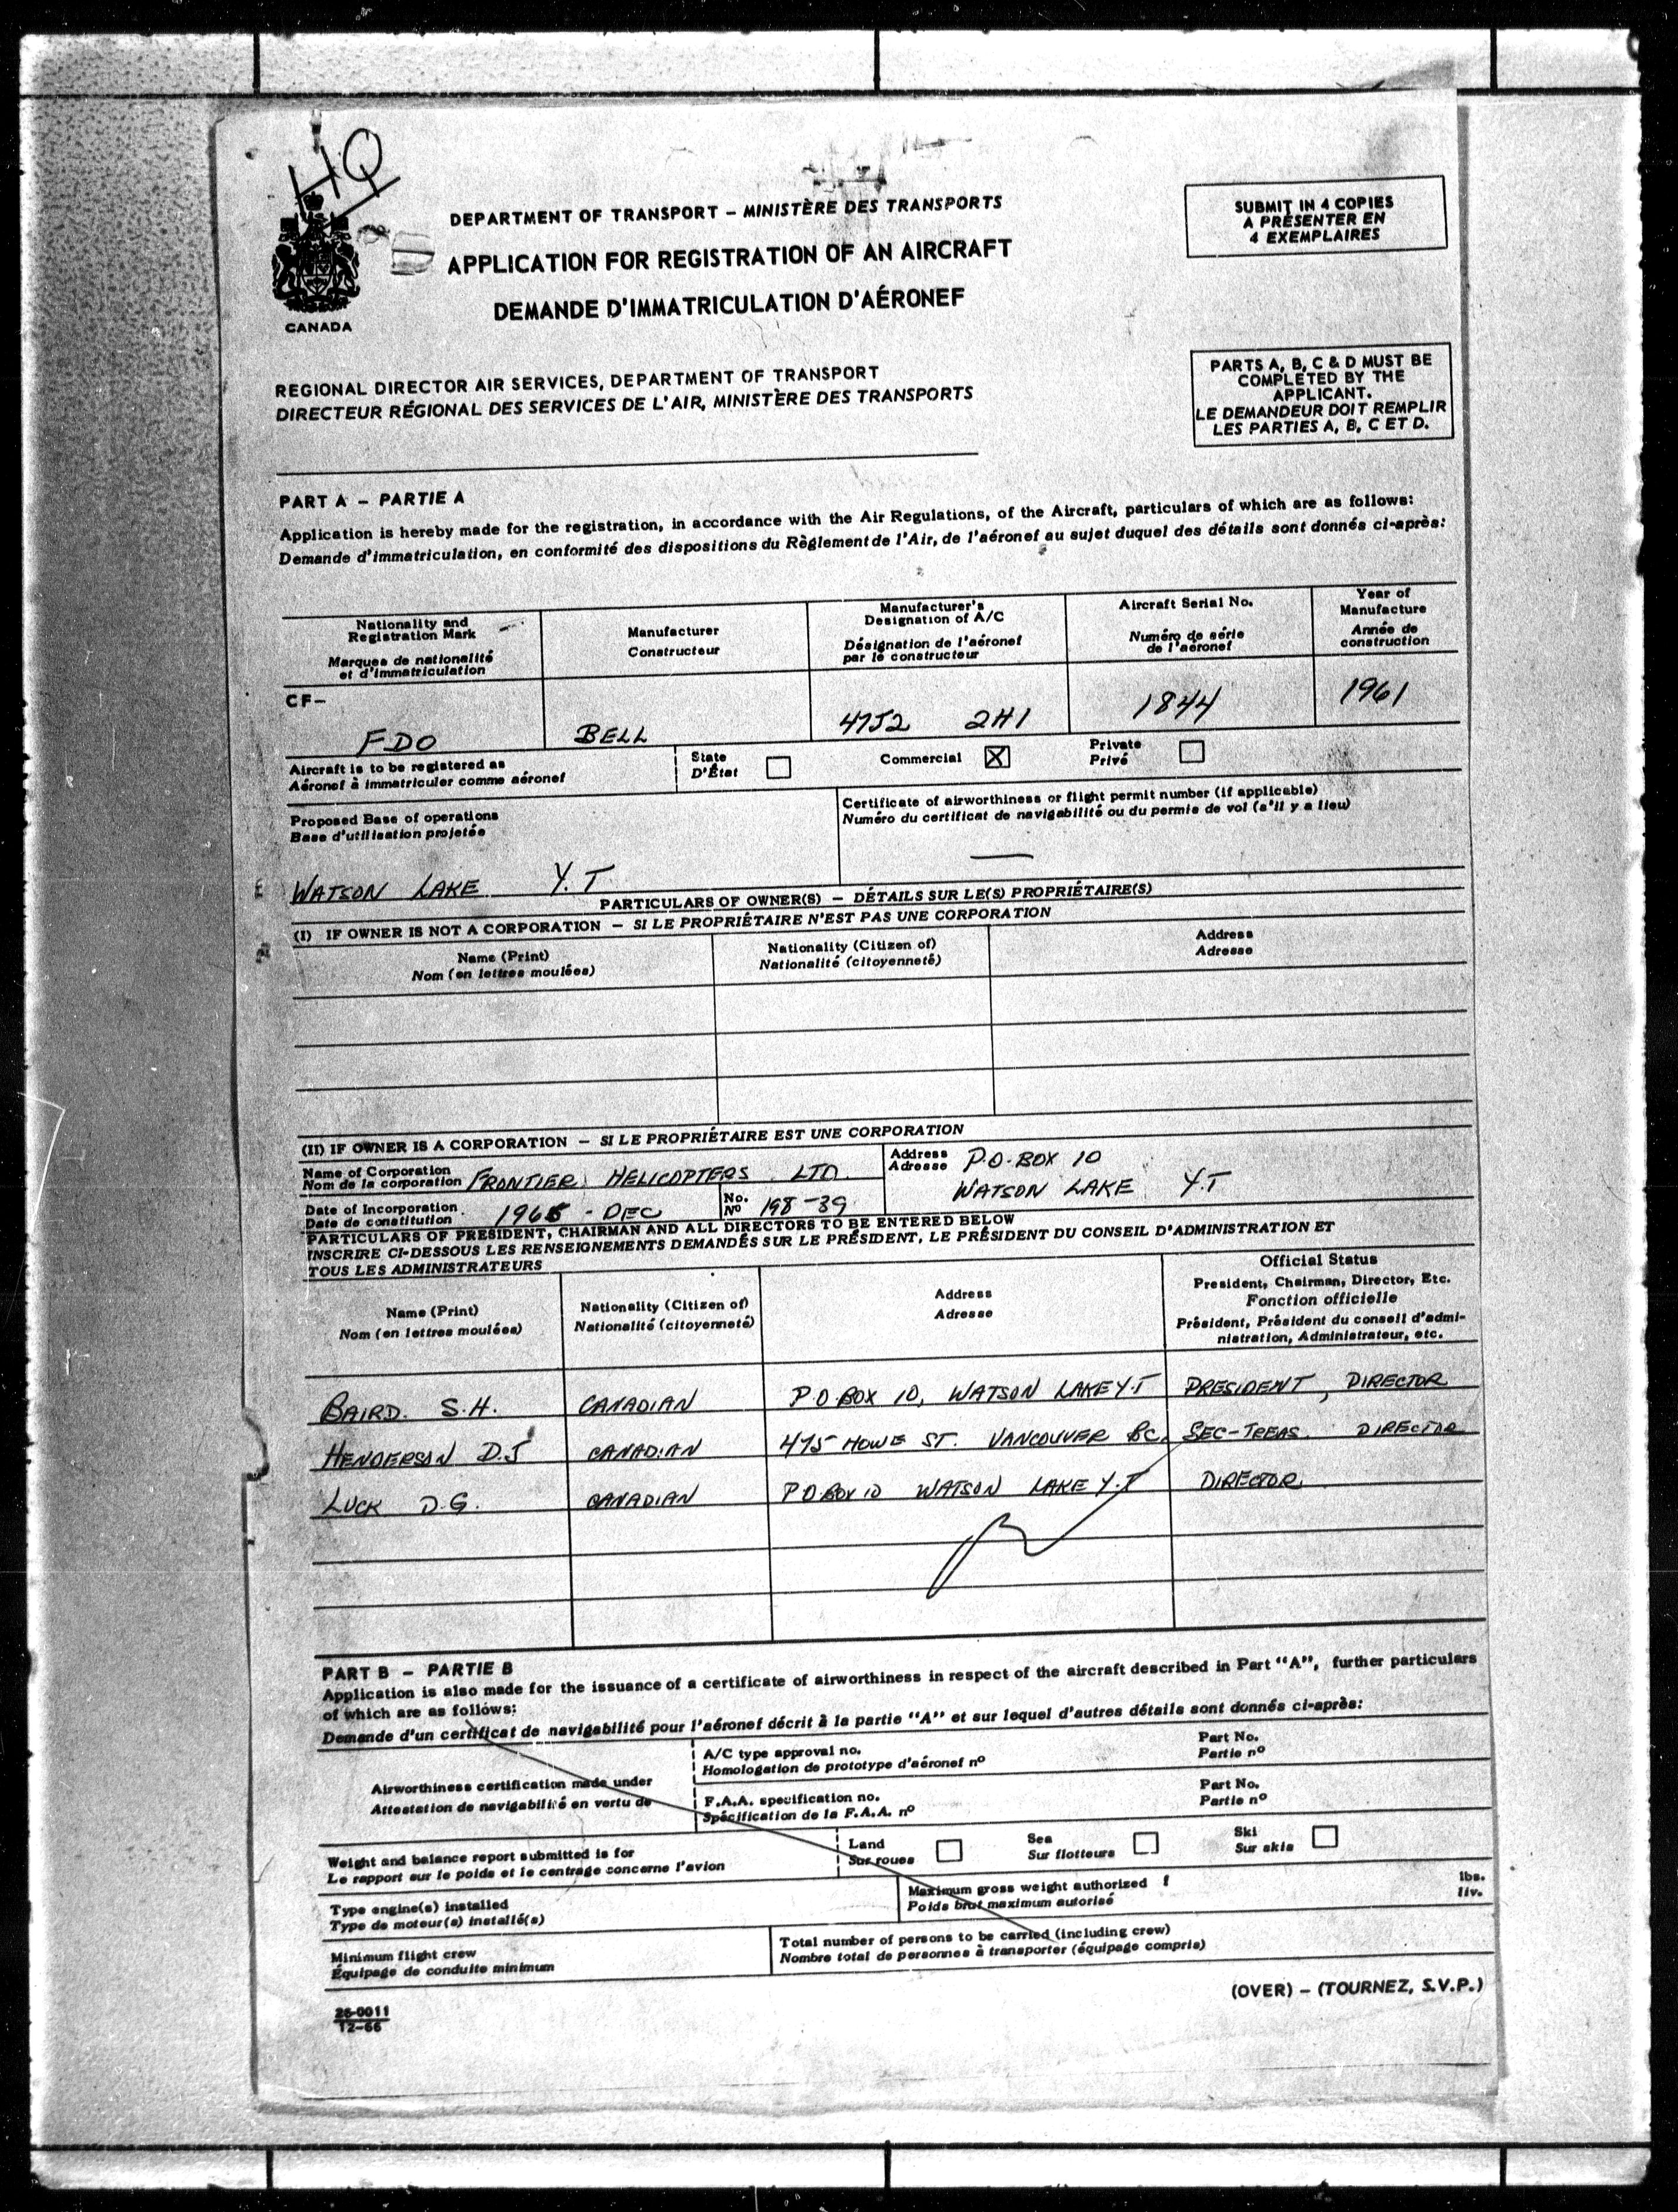 HQ
DEPARTMENT OF TRANSPORT – MINISTÈRE DES TRANSPORTS
APPLICATION FOR REGISTRATION OF AN AIRCRAFT
DEMANDE D'IMMATRICULATION D'AÉRONEF
CANADA
SUBMIT IN 4 COPIES
A PRÉSENTER EN
4 EXEMPLAIRES
REGIONAL DIRECTOR AIR SERVICES, DEPARTMENT OF TRANSPORT
DIRECTEUR RÉGIONAL DES SERVICES DE L'AIR, MINISTÈRE DES TRANSPORTS
PARTS A, B, C & D MUST BE
COMPLETED BY THE
APPLICANT.
LE DEMANDEUR DOIT REMPLIR
LES PARTIES A, B, C ET D.
PART A – PARTIE A
Application is hereby made for the registration, in accordance with the Air Regulations, of the Aircraft, particulars of which are as follows:
Demande d'immatriculation, en conformité des dispositions du Règlement de l'Air, de l'aéronef au sujet duquel des détails sont donnés ci-après:
Nationality and
Registration Mark
Marques de nationalité
et d'immatriculation
Manufacturer
Constructeur
Manufacturer's
Designation of A/C
Désignation de l'aéronef
par le constructeur
Aircraft Serial No.
Numéro de série
de l'aéronef
Year of
Manufacture
Année de
construction
CF–
FDO
BELL
47J2 2H1
1844
1961
Aircraft is to be registered as
Aéronef à immatriculer comme aéronef
State
D'État
Commercial
Private
Privé
Proposed Base of operations
Base d'utilisation projetée
WATSON LAKE Y.T
Certificate of airworthiness or flight permit number (if applicable)
Numéro du certificat de navigabilité ou du permis de vol (s'il y a lieu)
—
PARTICULARS OF OWNER(S) – DÉTAILS SUR LE(S) PROPRIÉTAIRE(S)
(I) IF OWNER IS NOT A CORPORATION – SI LE PROPRIÉTAIRE N'EST PAS UNE CORPORATION
Name (Print)
Nom (en lettres moulées)
Nationality (Citizen of)
Nationalité (citoyenneté)
Address
Adresse
(II) IF OWNER IS A CORPORATION – SI LE PROPRIÉTAIRE EST UNE CORPORATION
Name of Corporation
Nom de la corporation
FRONTIER HELICOPTERS LTD.
Address
Adresse
P.O. BOX 10
WATSON LAKE Y.T
Date of Incorporation
Date de constitution
1965 - DEC
No.
Nº
198-39
PARTICULARS OF PRESIDENT, CHAIRMAN AND ALL DIRECTORS TO BE ENTERED BELOW
INSCRIRE CI-DESSOUS LES RENSEIGNEMENTS DEMANDÉS SUR LE PRÉSIDENT, LE PRÉSIDENT DU CONSEIL D'ADMINISTRATION ET
TOUS LES ADMINISTRATEURS
Name (Print)
Nom (en lettres moulées)
Nationality (Citizen of)
Nationalité (citoyenneté)
Address
Adresse
Official Status
President, Chairman, Director, Etc.
Fonction officielle
Président, Président du conseil d'admi-
nistration, Administrateur, etc.
BAIRD. S.H. CANADIAN P.O. BOX 10, WATSON LAKE Y.T PRESIDENT, DIRECTOR
HENDERSON D.J CANADIAN 475 HOWE ST. VANCOUVER BC. SEC-TREAS. DIRECTOR
LUCK D.G. CANADIAN P.O. BOX 10 WATSON LAKE Y.T DIRECTOR
PART B – PARTIE B
Application is also made for the issuance of a certificate of airworthiness in respect of the aircraft described in Part "A", further particulars
of which are as follows:
Demande d'un certificat de navigabilité pour l'aéronef décrit à la partie "A" et sur lequel d'autres détails sont donnés ci-après:
Airworthiness certification made under
Attestation de navigabilité en vertu de
A/C type approval no.
Homologation de prototype d'aéronef nº
Part No.
Partie nº
F.A.A. specification no.
Spécification de la F.A.A. nº
Part No.
Partie nº
Weight and balance report submitted is for
Le rapport sur le poids et le centrage concerne l'avion
Land
Sur roues
Sea
Sur flotteurs
Ski
Sur skis
Type engine(s) installed
Type de moteur(s) installé(s)
Maximum gross weight authorized
Poids brut maximum autorisé
lbs.
liv.
Minimum flight crew
Équipage de conduite minimum
Total number of persons to be carried (including crew)
Nombre total de personnes à transporter (équipage compris)
26-0011
12-66
(OVER) – (TOURNEZ, S.V.P.)